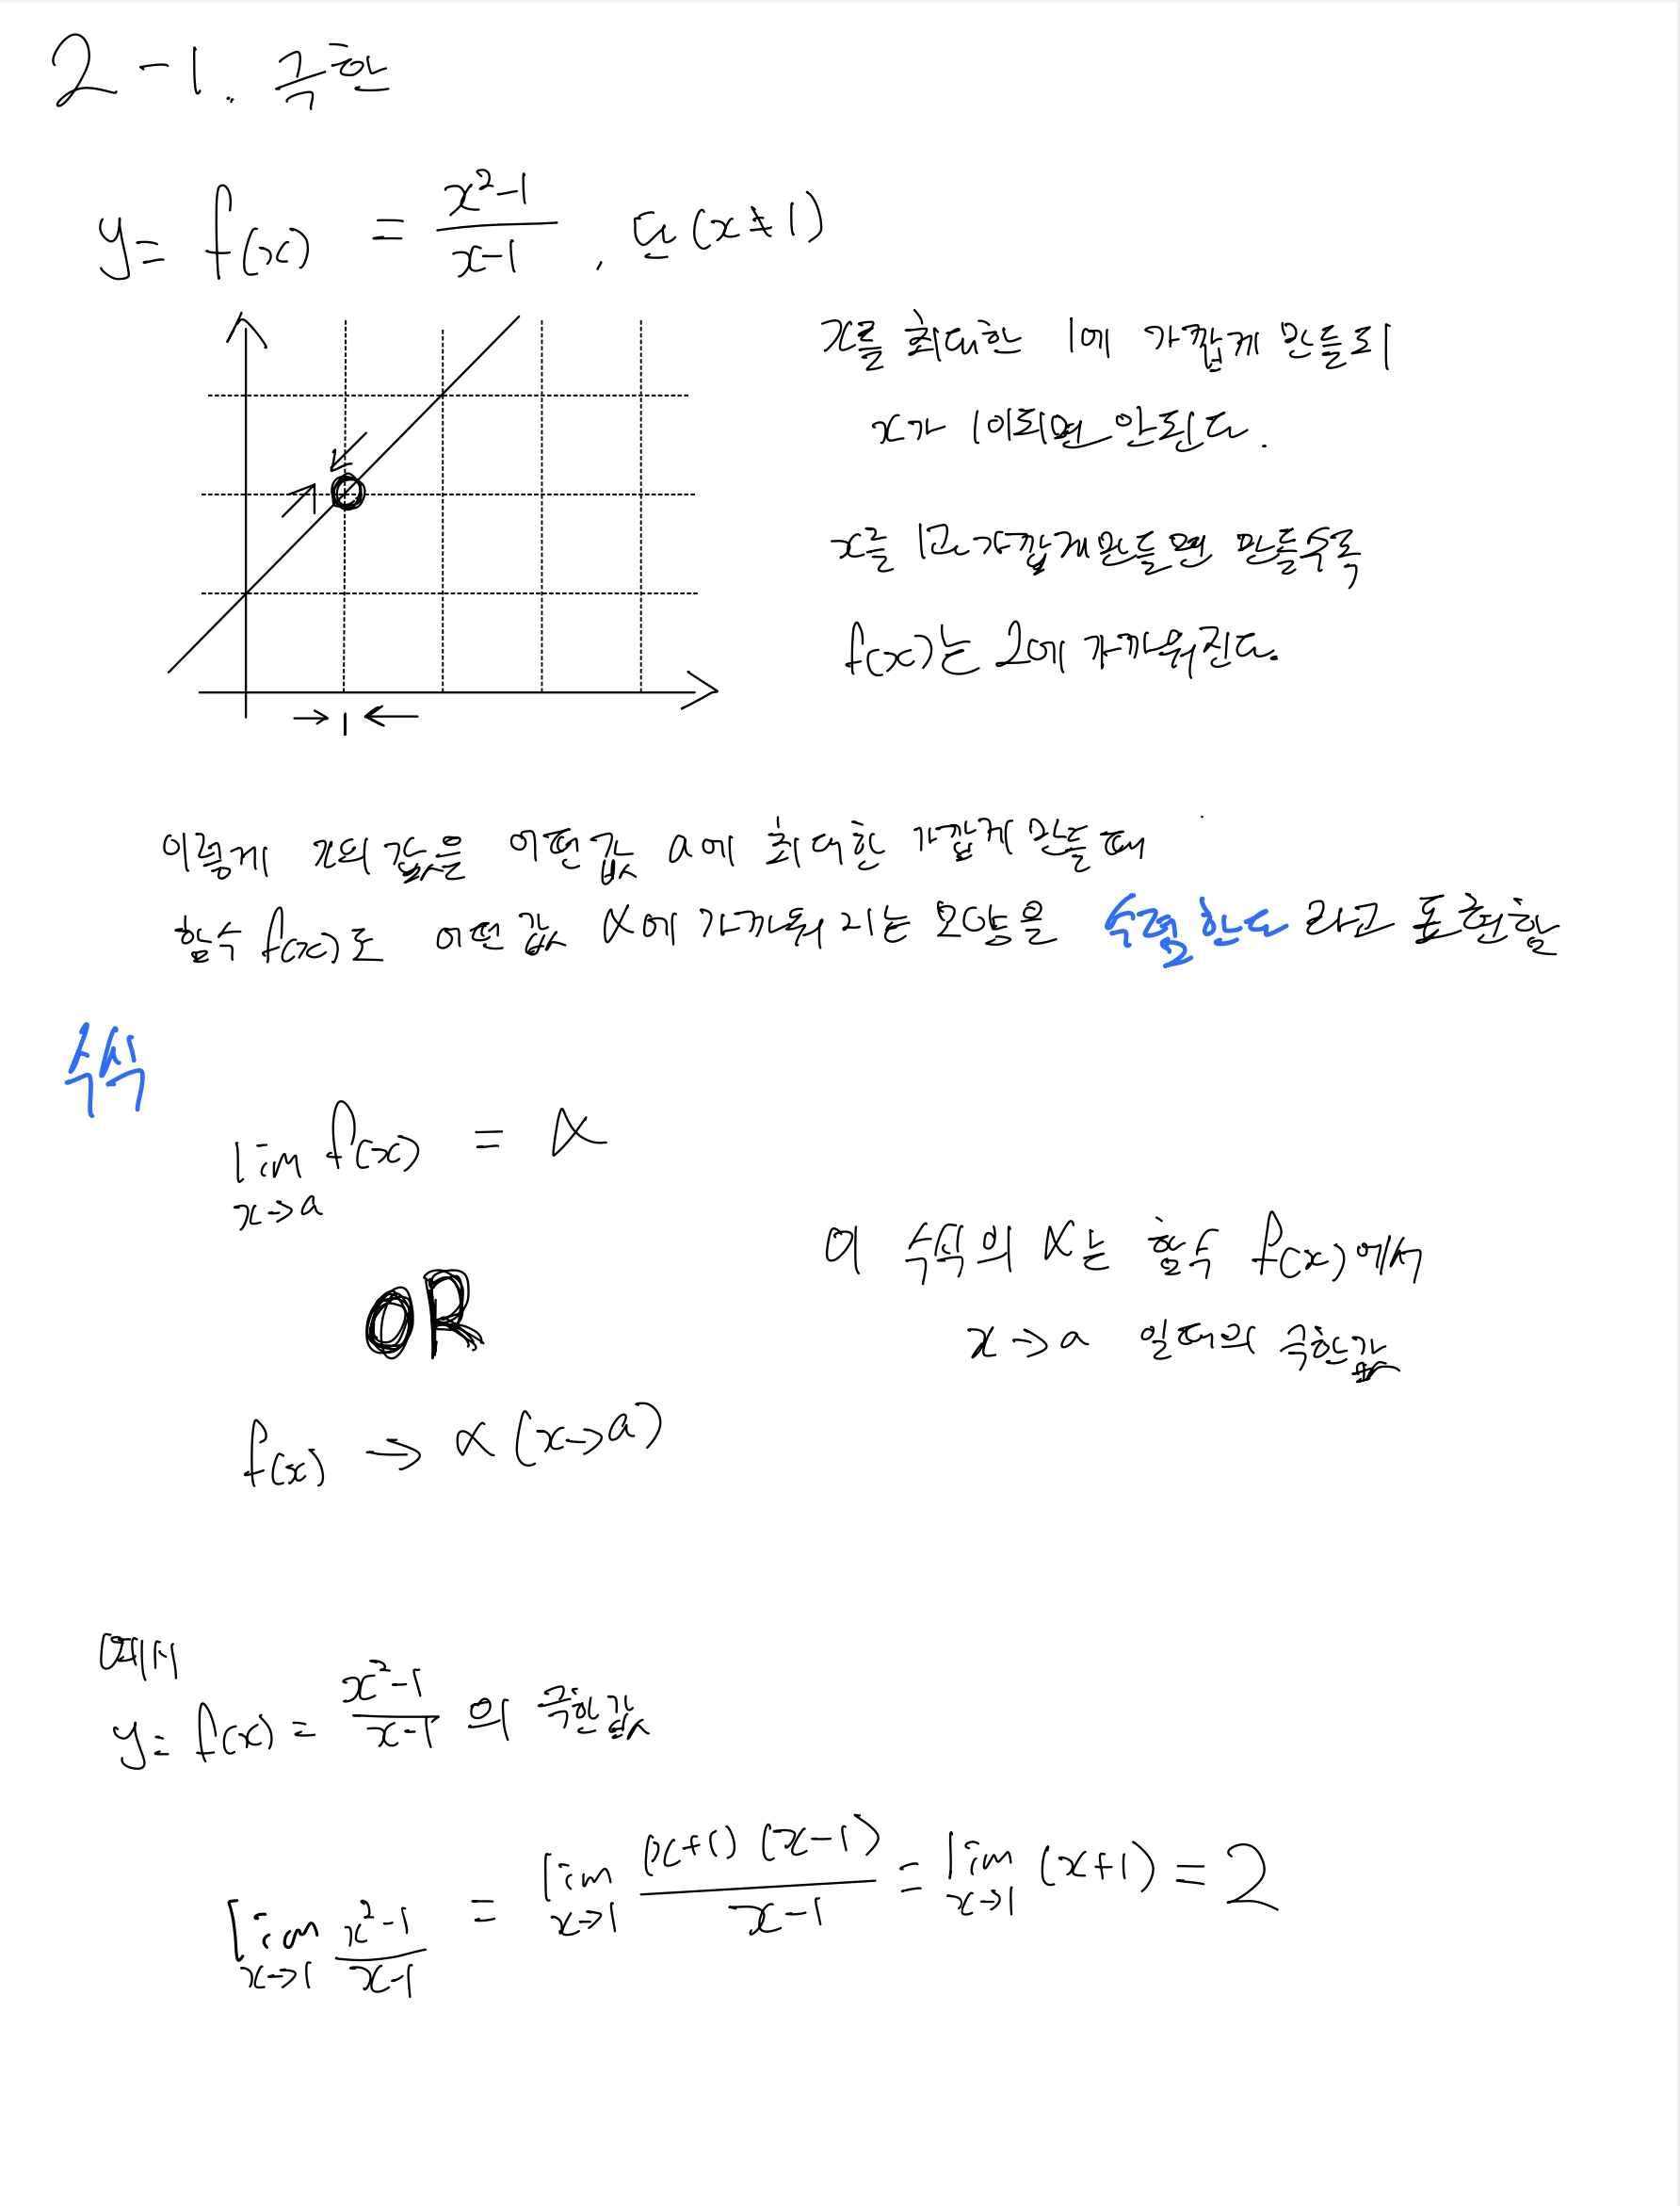 2-1. 극한
y = f(x) = x²-1 / x-1 , 단 (x≠1)
x를 최대한 1에 가깝게 만들되
x가 1이되면 안된다.
x를 1로 가깝게만들면 만들수록
f(x)는 2에 가까워진다.
→ 1 ←
이렇게 x의 값을 어떤값 a에 최대한 가깝게 만들 때
함수 f(x)도 어떤 값 α에 가까워 지는 모양을 수렴한다 라고 표현함
수식
lim x→a f(x) = α
OR
f(x) → α (x→a)
이 수식의 α는 함수 f(x)에서
x→a 일때의 극한값
예시
y = f(x) = x²-1 / x-1 의 극한값
lim x→1 x²-1 / x-1 = lim x→1 (x+1)(x-1) / x-1 = lim x→1 (x+1) = 2